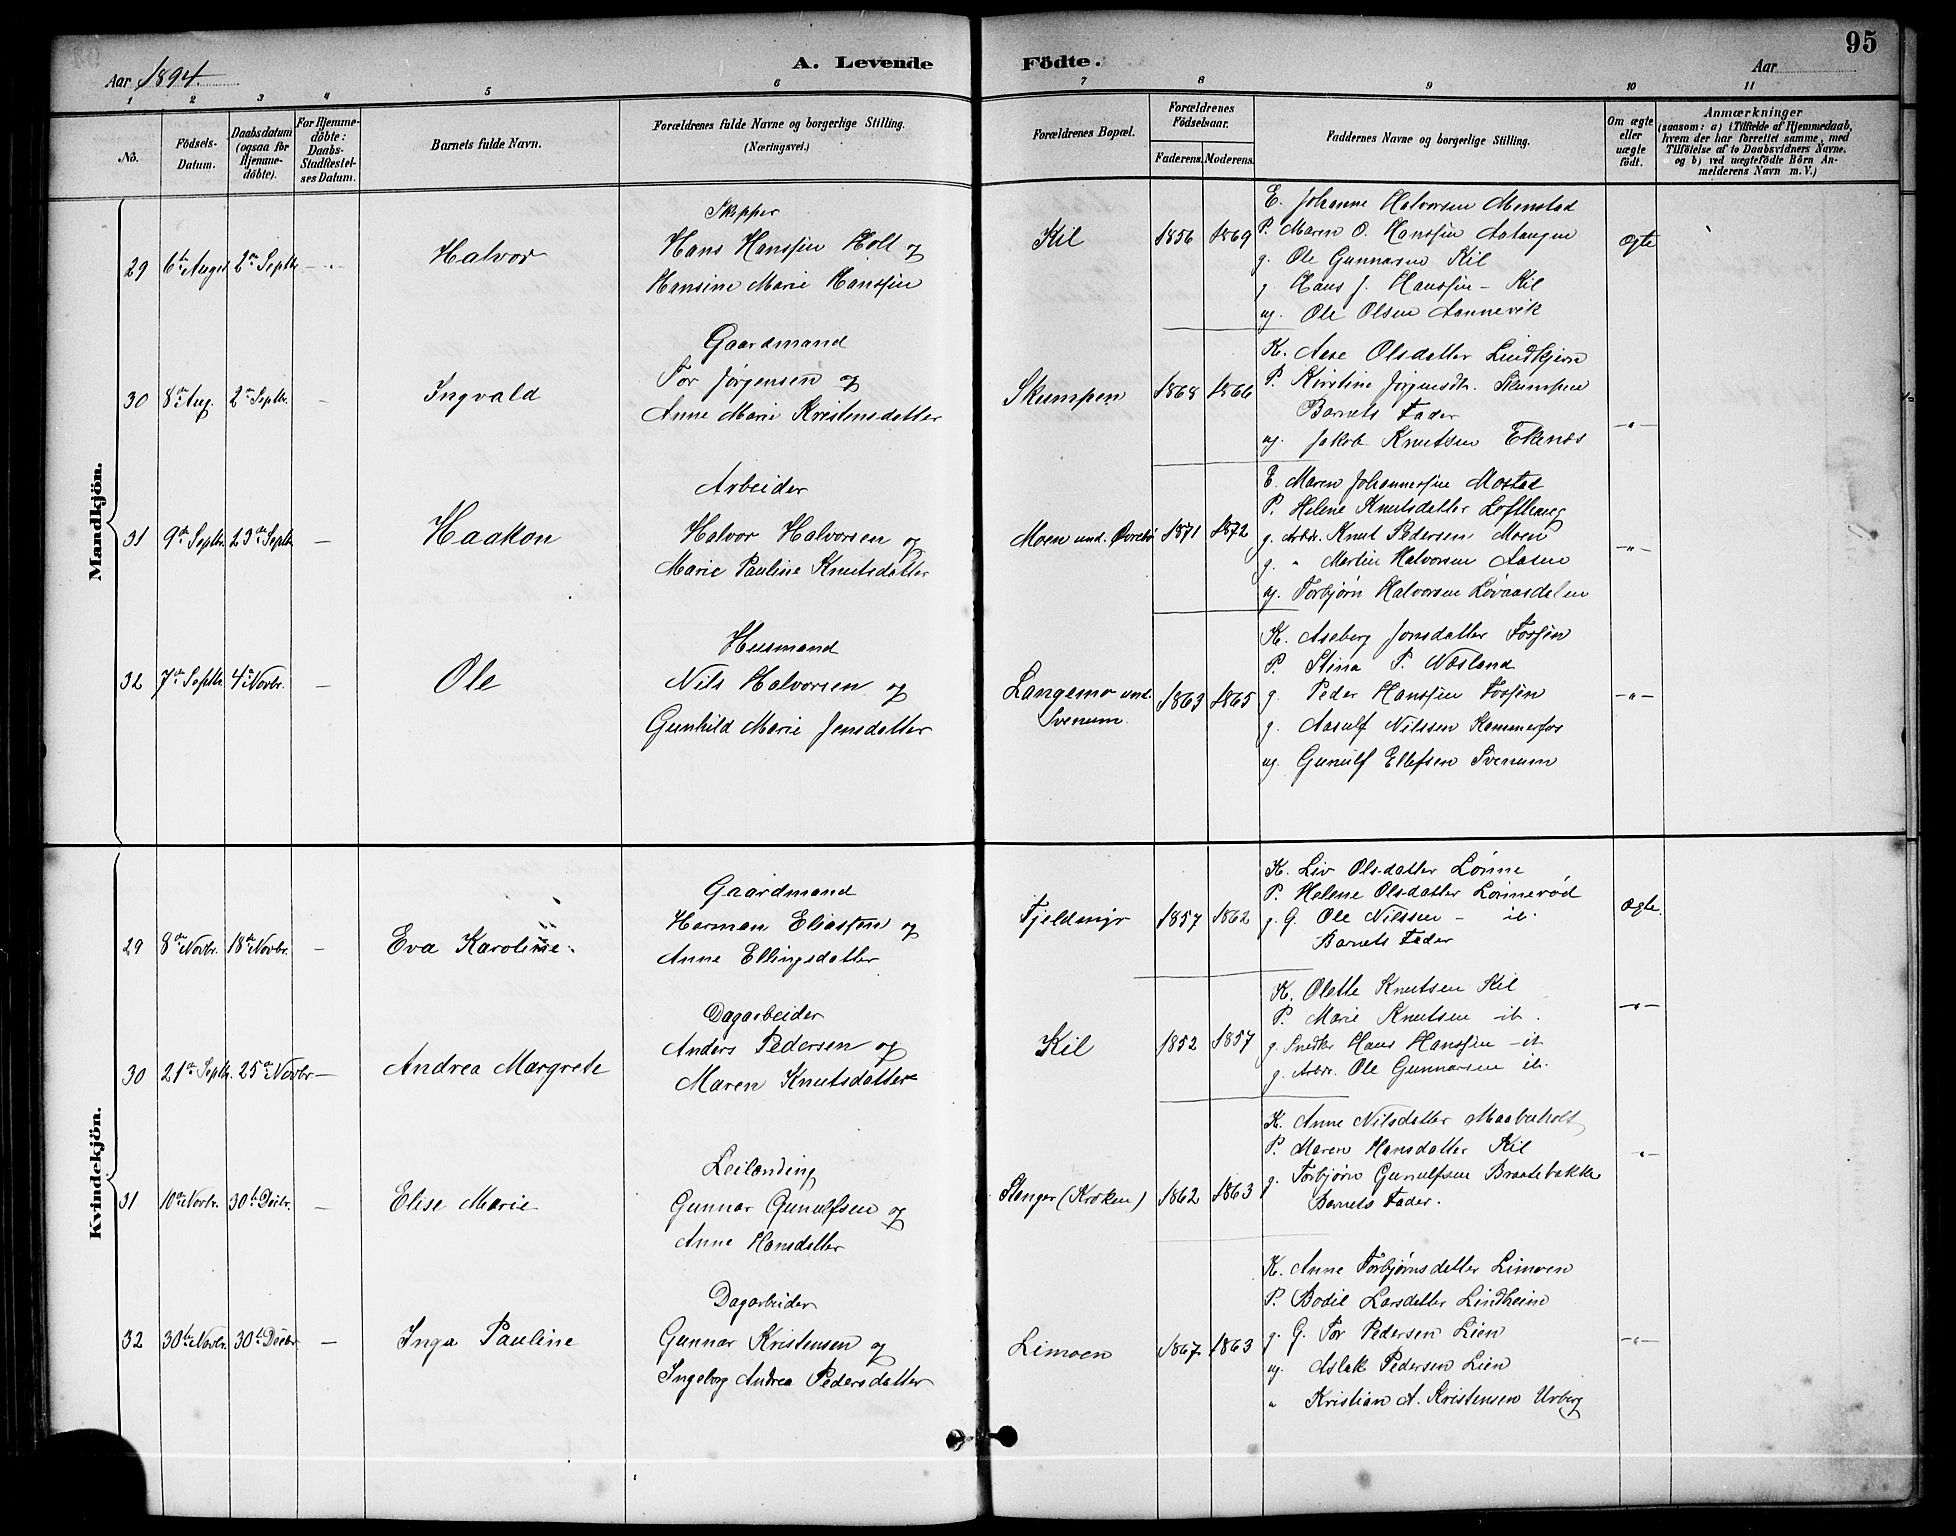 Aar 1894.
A. Levende Födte.
95
Aar
1 2 3 4 5 6 7 8 9 10 11
No.
Födsels-Datum.
Daabsdatum (ogsaa for Hjemme-döbte).
For Hjemme-döbte: Daabs-Stadfæstel-ses Datum.
Barnets fulde Navn.
Forældrenes fulde Navne og borgerlige Stilling. (Næringsvei.)
Forældrenes Bopæl.
Forældrenes Födselsaar.
Faderens. Moderens.
Faddernes Navne og borgerlige Stilling.
Om ægte eller uægte födt.
Anmærkninger
(saasom: a) i Tilfælde af Hjemmedaab, hvem der har forrettet samme, med Tilföielse af to Daabsvidners Navne, og b) ved uægtefödte Börn An-melderens Navn m. V.)
Mandkjön.
29 6te August 2den Septbr. — Halvor
Skipper
Hans Hanssen Holt og
Hansine Marie Hanssen
Kil 1856 1869
E. Johanne Halvorsen Menstad
P. Maren O. Hanssen
g. Ole Gunnarsen Kil
g. Hans J. Hanssen - Kil
ug. Ole Olsen Sannevik
Ægte
30 8de Aug. 2den Septbr. — Ingvald
Gaardmand
Tor Jørgensen og
Anne Marie Kristensdatter
Skumpen 1868 1866
K. Aase Olsdatter Lindtjern
P. Kirstine Jørgensdtr. Skumpen
Barnets Fader
ug. Jakob Knutsen Ekenæs
— " —
31 9de Septbr. 23de Septbr. — Haakon
Arbeider
Halvor Halvorsen og
Marie Pauline Knutsdatter
Moen und. Øvrebø 1871 1872
E. Maren Johannessen Mostad
P. Helene Knutsdatter Lofthaug
g. Arbdr. Knut Pedersen Moen
g. " Martin Halvorsen Aasen
ug. Torbjørn Halvorsen Løvaasdalen
— " —
32 7de Septbr. 4de Novbr. — Ole
Husmand
Nils Halvorsen og
Gunhild Marie Jensdatter
Langemo und. Svenum 1863 1865
K. Aseberg Jonsdatter Fossen
P. Stina P. Næsland
g. Peder Hanssen Fossen
g. Aasulf Nilssen Kammerfos
ug. Gunulf Ellefsen Svenum
— " —
Kvindekjön.
29 8de Novbr. 18de Novbr. — Eva Karoline.
Gaardmand
Herman Eliassen og
Anne Ellingsdatter
Fjeldmyr 1857 1862
K. Liv Olsdatter Lønne
P. Helene Olsdatter Lønnerød
g. G. Ole Nilssen - ib.
Barnets Fader
Ægte.
30 21de Septbr. 25de Novbr. — Andrea Margrete
Dagarbeider
Anders Pedersen og
Maren Knutsdatter
Kil 1852 1857
K. Olette Knutsen Kil
P. Marie Knutsen - ib.
g. Snedker Hans Hanssen - ib
g. Arbdr. Ole Gunnarsen ib.
— " —
31 10de Novbr. 30te Decbr. — Elise Marie
Leilending
Gunnar Gunulfsen og
Anne Hansdatter
Stenger (Kroken) 1862 1863
K. Anne Nilsdatter Maabuholt
P. Maren Hansdatter Kil
g. Torbjørn Gunulfsen Braatebakke
Barnets Fader.
— " —
32 30te Novbr. 30te Decbr. — Inga Pauline
Dagarbeider
Gunnar Kristensen og
Ingeborg Andrea Pedersdatter
Limoen 1867 1863
K. Anne Torbjørnsdatter Limoen
P. Bodil Larsdatter Lindheim
g. G. Tor Pedersen Lien
ug. Aslak Pedersen Lien
" Kristian A. Kristensen Urberg
— " —